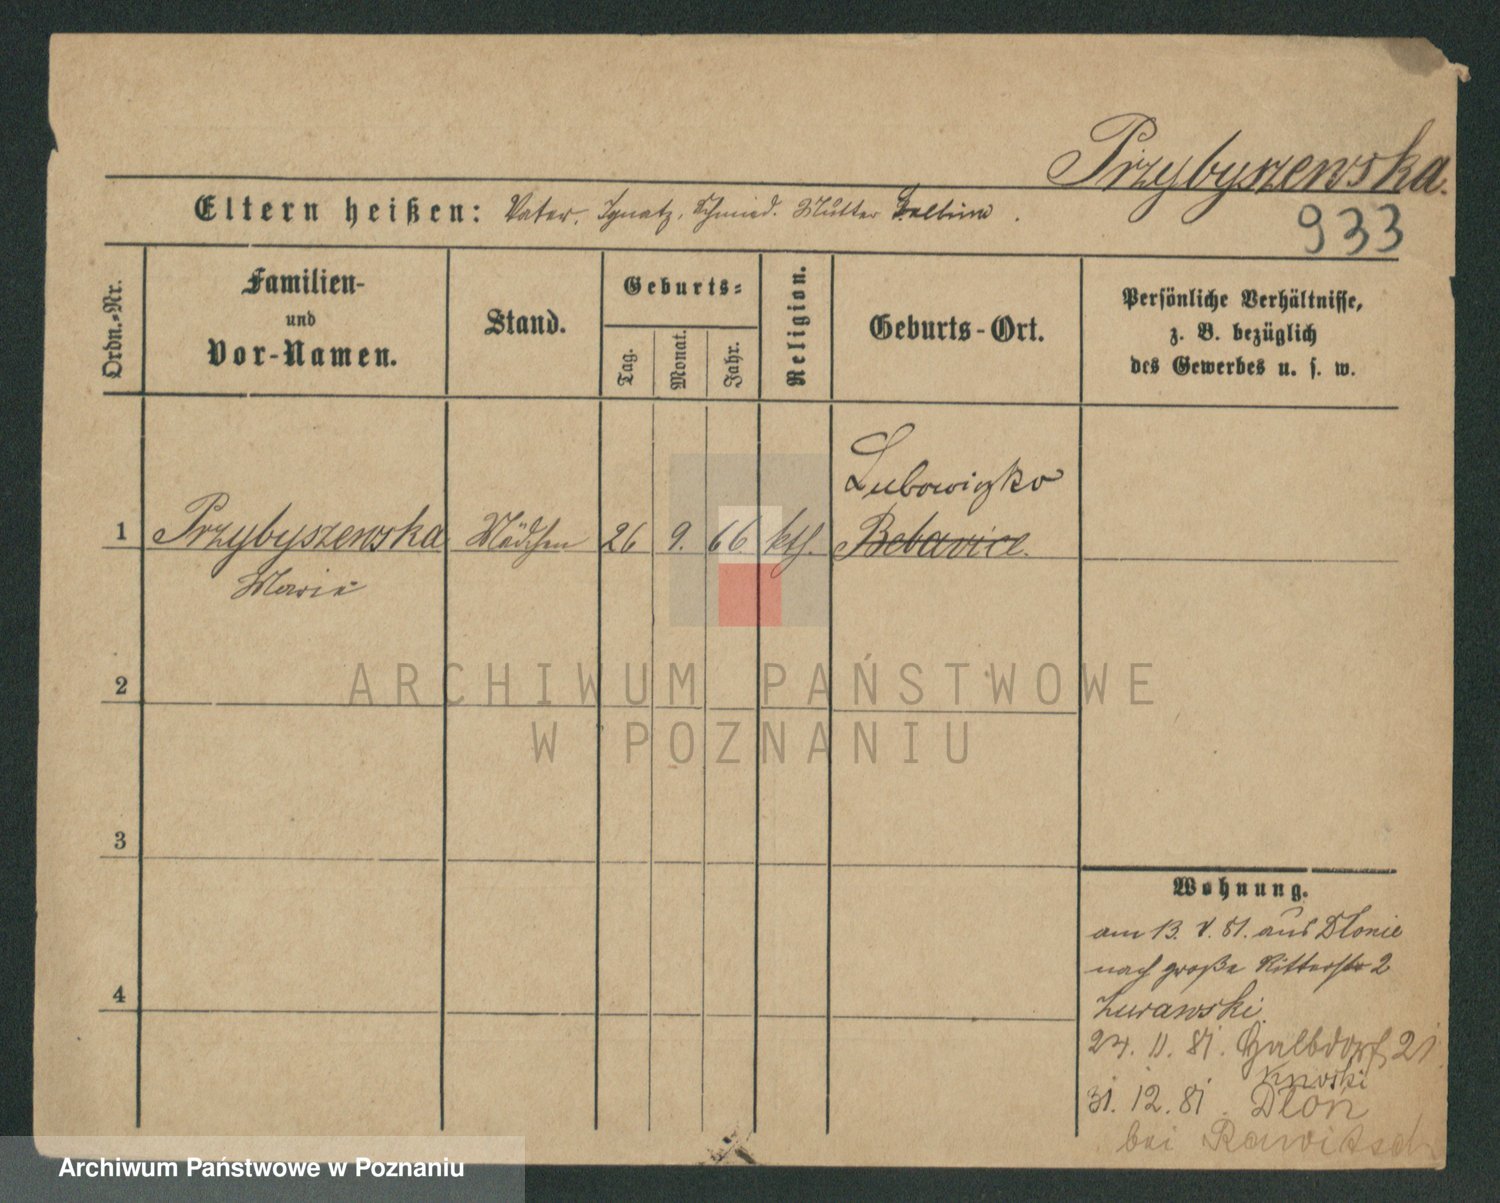 Przybyszewska.
933
Eltern heißen: Vater. Ignatz, Schmied. Mutter
Ordn.-Nr.
Familien- und Vor-Namen.
Stand.
Geburts-
Tag.
Monat.
Jahr.
Religion.
Geburts-Ort.
Persönliche Verhältnisse,
z. B. bezüglich
des Gewerbes u. s. w.
Lubowiczko
1 Przybyszewska Mädchen 26 9. 66 kth. Bebavice.
Marie
2
3
4
Wohnung.
am 13. V. 81. aus Dlonie
nach große Ritterstr 2
Zurawski.
24. 11. 81. Halbdorf 21
31. 12. 81. Dlon
bei Rawitsch
ARCHIWUM PAŃSTWOWE
W POZNANIU
Archiwum Państwowe w Poznaniu